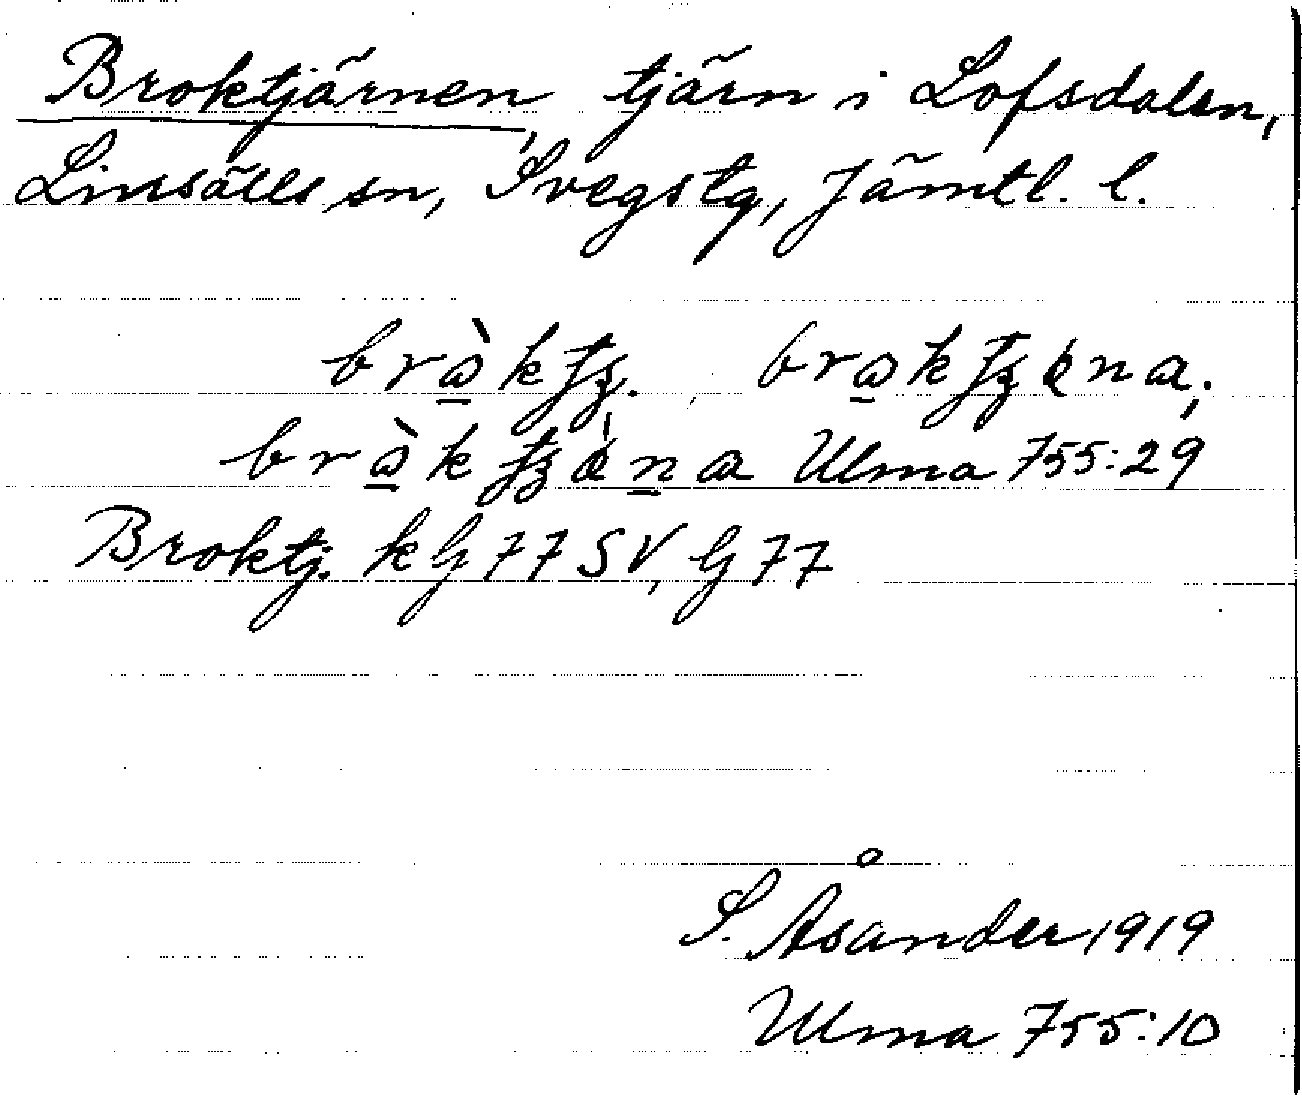 Broktjärnen, tjärn i Lofsdalen,
Linsälls sn, Svegs tg, Jämtl. l.
Ulma 755:29
Broktj. kG 77 SV, G 77
S. Åsander 1919
Ulma 755:10